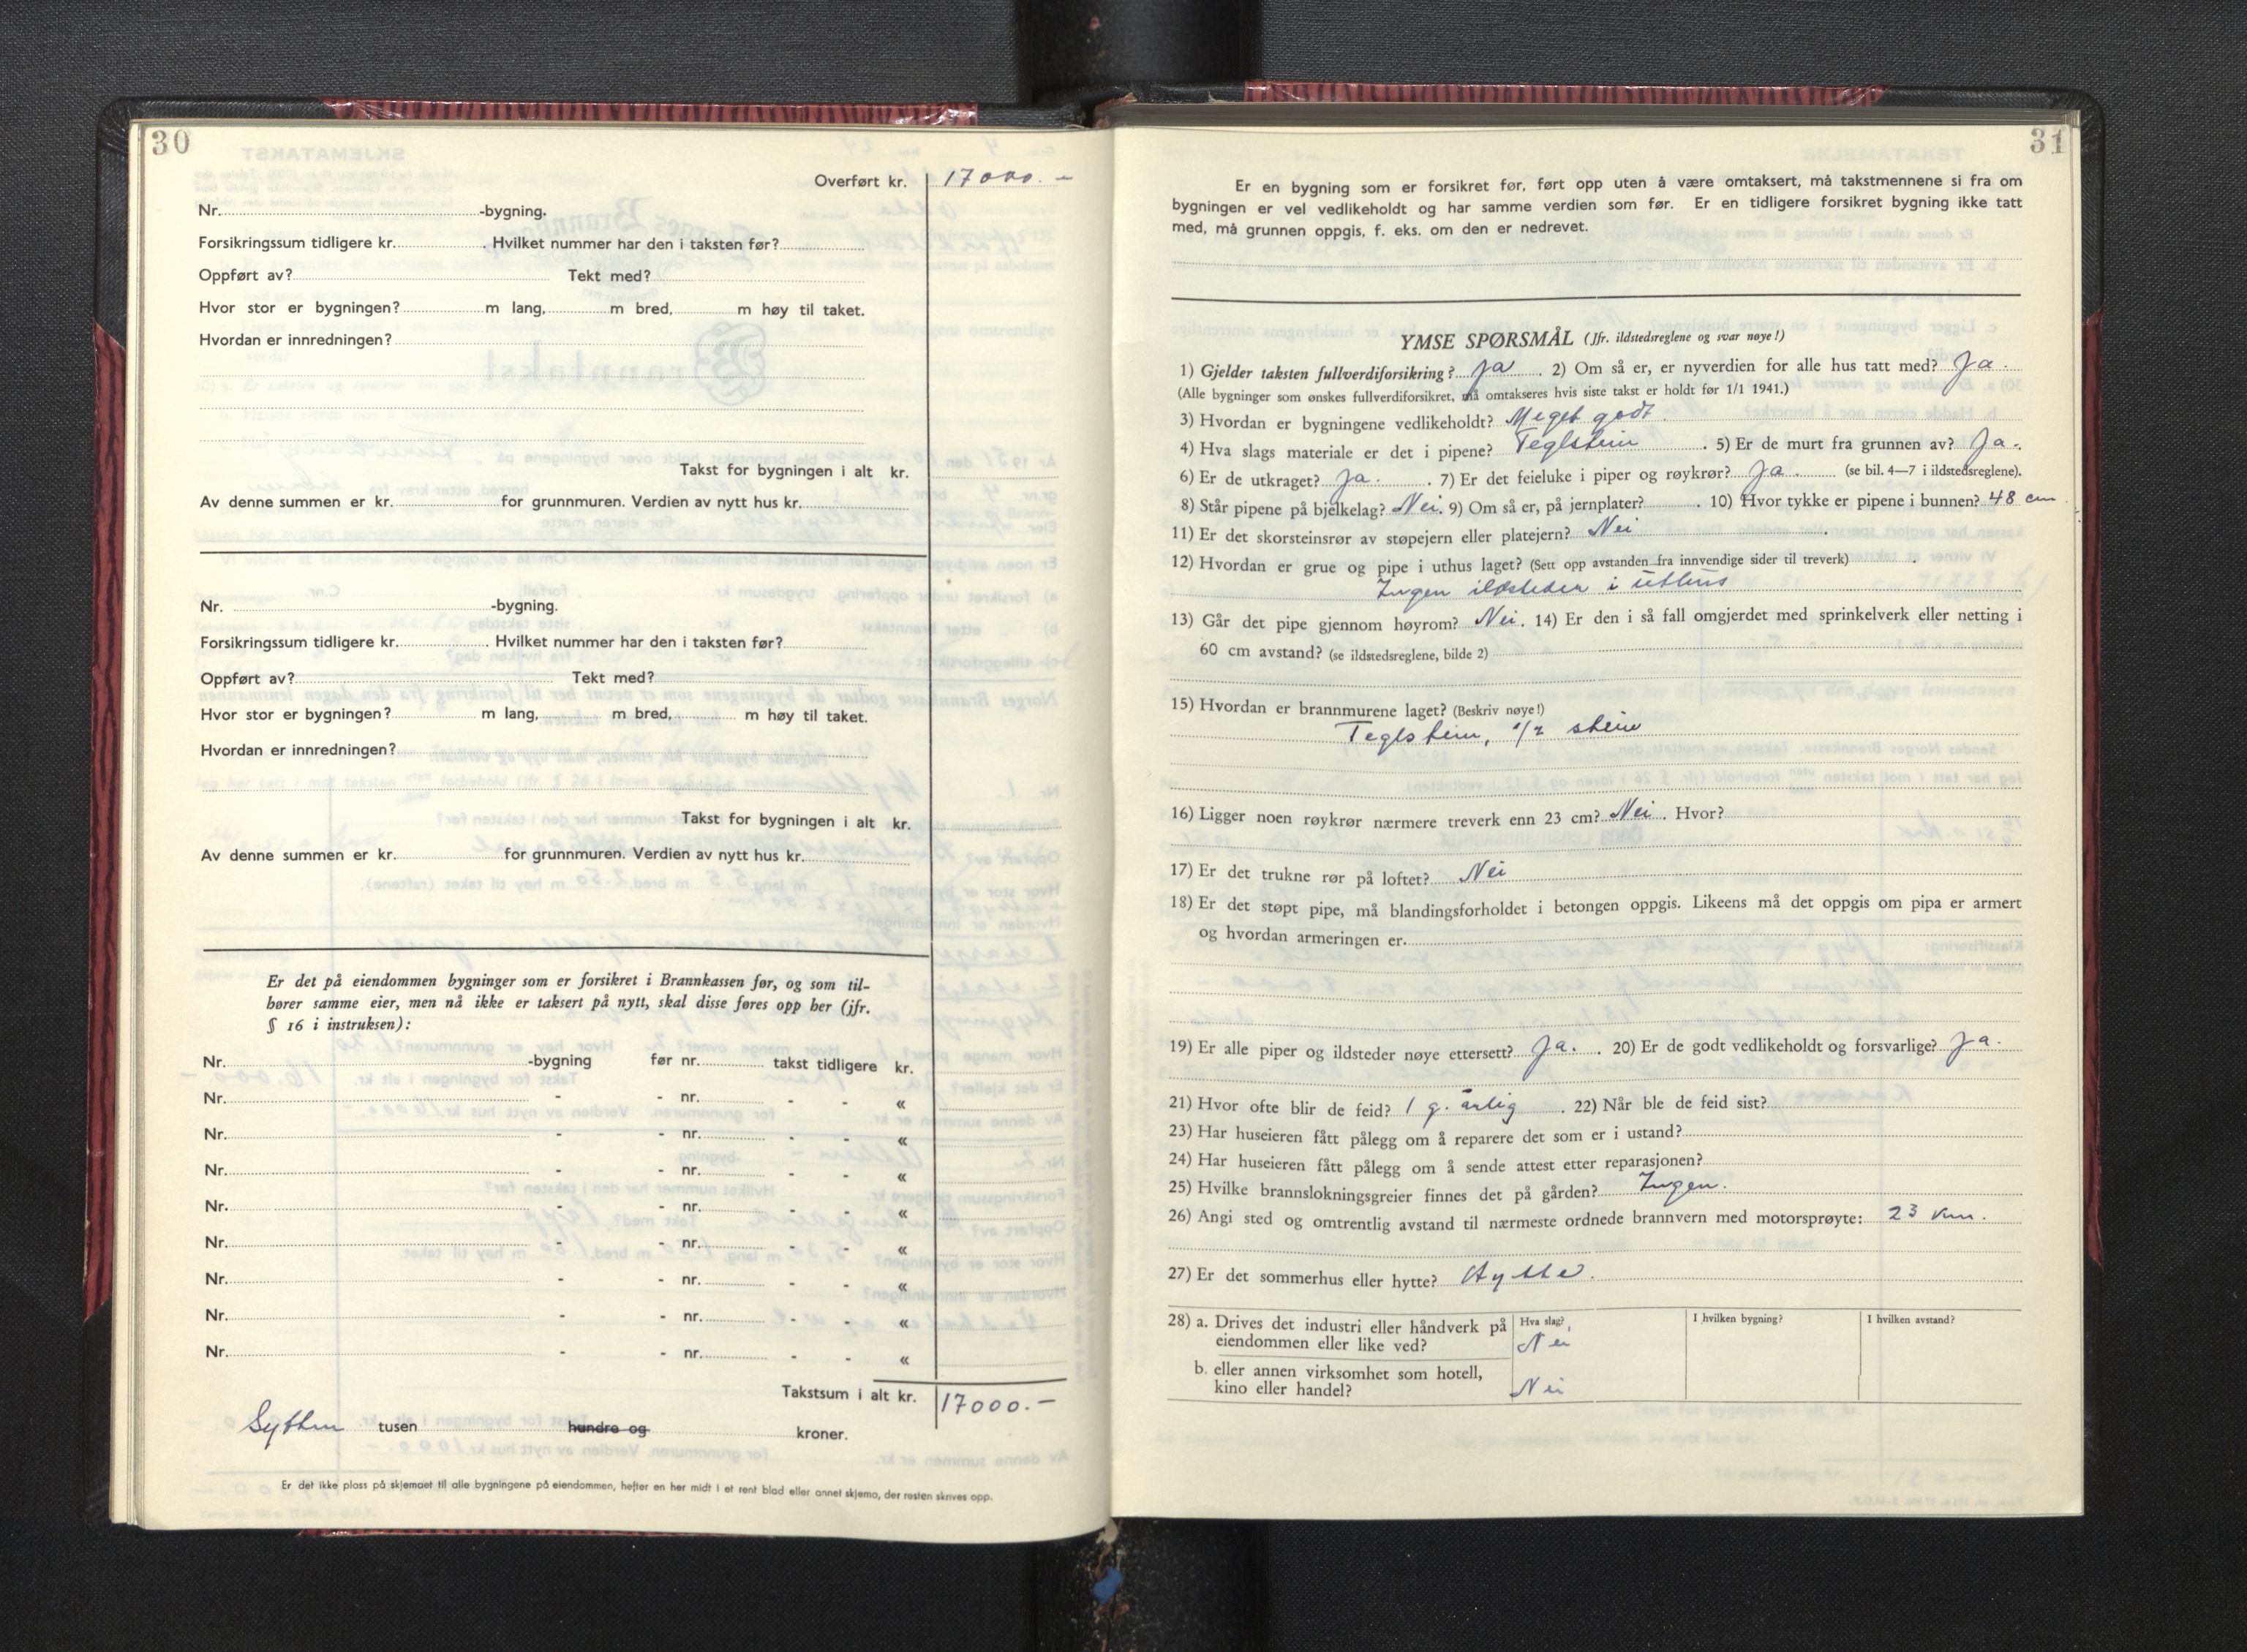 30
Overført kr. 17000.-
Nr. -bygning.
Forsikringssum tidligere kr. . Hvilket nummer har den i taksten før?
Oppført av? Tekt med?
Hvor stor er bygningen? m lang, m bred, m høy til taket.
Hvordan er innredningen?
Takst for bygningen i alt kr.
Av denne summen er kr. for grunnmuren. Verdien av nytt hus kr.
Nr. -bygning.
Forsikringssum tidligere kr. . Hvilket nummer har den i taksten før?
Oppført av? Tekt med?
Hvor stor er bygningen? m lang, m bred, m høy til taket.
Hvordan er innredningen?
Takst for bygningen i alt kr.
Av denne summen er kr. for grunnmuren. Verdien av nytt hus kr.
Er det på eiendommen bygninger som er forsikret i Brannkassen før, og som til-
hører samme eier, men nå ikke er taksert på nytt, skal disse føres opp her (jfr.
§ 16 i instruksen):
Nr. -bygning før nr. takst tidligere kr.
Nr. - - nr. - - «
Nr. - - nr. - - «
Nr. - - nr. - - «
Nr. - - nr. - - «
Nr. - - nr. - - «
Nr. - - nr. - - «
Nr. - - nr. - - «
Nr. - - nr. - - «
Takstsum i alt kr. 17000.-
Sytten tusen hundre og kroner.
Er det ikke plass på skjemaet til alle bygningene på eiendommen, hefter en her midt i et rent blad eller annet skjema, der resten skrives opp.
31
Er en bygning som er forsikret før, ført opp uten å være omtaksert, må takstmennene si fra om
bygningen er vel vedlikeholdt og har samme verdien som før. Er en tidligere forsikret bygning ikke tatt
med, må grunnen oppgis, f. eks. om den er nedrevet.
YMSE SPØRSMÅL (Jfr. ildstedsreglene og svar nøye!)
1) Gjelder taksten fullverdiforsikring? Ja . 2) Om så er, er nyverdien for alle hus tatt med? Ja.
(Alle bygninger som ønskes fullverdiforsikret, må omtakseres hvis siste takst er holdt før 1/1 1941.)
3) Hvordan er bygningene vedlikeholdt? Meget godt.
4) Hva slags materiale er det i pipene? Teglstein . 5) Er de murt fra grunnen av? Ja.
6) Er de utkraget? Ja. . 7) Er det feieluke i piper og røykrør? Ja. (se bil. 4—7 i ildstedsreglene).
8) Står pipene på bjelkelag? Nei. 9) Om så er, på jernplater? . 10) Hvor tykke er pipene i bunnen? 48 cm
11) Er det skorsteinsrør av støpejern eller platejern? Nei .
12) Hvordan er grue og pipe i uthus laget? (Sett opp avstanden fra innvendige sider til treverk) .
Ingen ildsteder i uthus
13) Går det pipe gjennom høyrom? Nei. 14) Er den i så fall omgjerdet med sprinkelverk eller netting i
60 cm avstand? (se ildstedsreglene, bilde 2)
15) Hvordan er brannmurene laget? (Beskriv nøye!)
Teglstein, 1/2 stein
16) Ligger noen røykrør nærmere treverk enn 23 cm? Nei . Hvor?
17) Er det trukne rør på loftet? Nei
18) Er det støpt pipe, må blandingsforholdet i betongen oppgis. Likeens må det oppgis om pipa er armert
og hvordan armeringen er.
19) Er alle piper og ildsteder nøye ettersett? Ja. . 20) Er de godt vedlikeholdt og forsvarlige? Ja.
21) Hvor ofte blir de feid? 1 g. årlig . 22) Når ble de feid sist?
23) Har huseieren fått pålegg om å reparere det som er i ustand?
24) Har huseieren fått pålegg om å sende attest etter reparasjonen?
25) Hvilke brannslokningsgreier finnes det på gården? Ingen.
26) Angi sted og omtrentlig avstand til nærmeste ordnede brannvern med motorsprøyte: 23 km.
27) Er det sommerhus eller hytte? Hytte.
28) a. Drives det industri eller håndverk på Hva slag? I hvilken bygning? I hvilken avstand?
eiendommen eller like ved? Nei
b. eller annen virksomhet som hotell,
kino eller handel? Nei